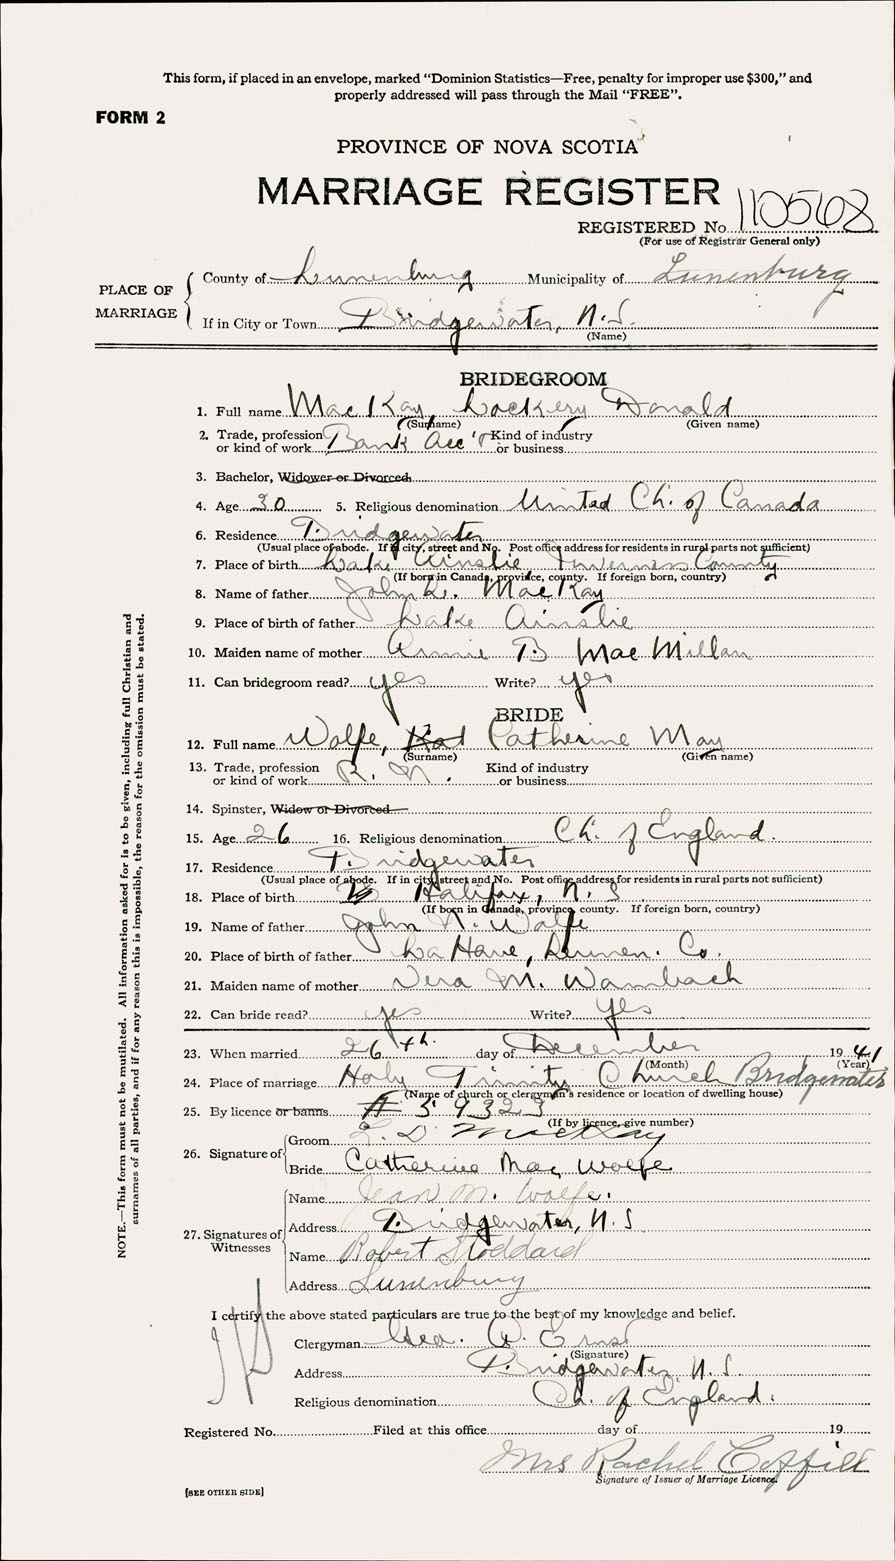 This form, if placed in an envelope, marked "Dominion Statistics—Free, penalty for improper use $300," and
properly addressed will pass through the Mail "FREE".
FORM 2
PROVINCE OF NOVA SCOTIA
MARRIAGE REGISTER
REGISTERED No. 110568
(For use of Registrar General only)
PLACE OF MARRIAGE
County of Lunenburg Municipality of Lunenburg
If in City or Town Bridgewater, N.S.
(Name)
BRIDEGROOM
1. Full name MacKay, Lockery Donald
(Surname) (Given name)
2. Trade, profession or kind of work Bank Acc't Kind of industry or business
3. Bachelor, Widower or Divorced
4. Age 30 5. Religious denomination United Ch. of Canada
6. Residence Bridgewater
(Usual place of abode. If in city, street and No. Post office address for residents in rural parts not sufficient)
7. Place of birth Lake Ainslie Inverness County
(If born in Canada, province, county. If foreign born, country)
8. Name of father John L. MacKay
9. Place of birth of father Lake Ainslie
10. Maiden name of mother Annie B MacMillan
11. Can bridegroom read? yes Write? yes
BRIDE
12. Full name Wolfe, Kat Catherine May
(Surname) (Given name)
13. Trade, profession or kind of work R. N. Kind of industry or business
14. Spinster, Widow or Divorced
15. Age 26 16. Religious denomination Ch. of England.
17. Residence Bridgewater
(Usual place of abode. If in city, street and No. Post office address for residents in rural parts not sufficient)
18. Place of birth Halifax, N. S
(If born in Canada, province, county. If foreign born, country)
19. Name of father John N. Wolfe
20. Place of birth of father LaHave, Lunen. Co.
21. Maiden name of mother Vera M. Wambach
22. Can bride read? yes Write? yes
23. When married 26th. day of December 1941
(Month) (Year)
24. Place of marriage Holy Trinity Church Bridgewater
(Name of church or clergyman's residence or location of dwelling house)
25. By licence or banns A 59323
(If by licence, give number)
26. Signature of
Groom L. D. MacKay
Bride Catherine May Wolfe
27. Signatures of Witnesses
Name Jean M. Wolfe.
Address Bridgewater, N.S
Name Robert Stoddard
Address Lunenburg
I certify the above stated particulars are true to the best of my knowledge and belief.
Clergyman Geo. W. Ernst
(Signature)
Address Bridgewater, N.S.
Religious denomination Ch. of England.
Registered No. Filed at this office day of 19
Mrs Rachel Coffill
Signature of Issuer of Marriage Licence.
[SEE OTHER SIDE]
NOTE.—This form must not be mutilated. All information asked for is to be given, including full Christian and
surnames of all parties, and if for any reason this is impossible, the reason for the omission must be stated.